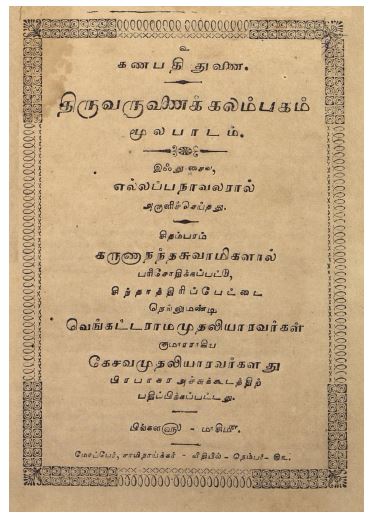 உ
கணபதி துணை.
திருவருணைக் கலம்பகம்
மூலபாடம்.
இஃது சைவ,
எல்லப்பநாவலரால்
அருளிச்செய்தது.
சிதம்பரம்
கருணாநந்தசுவாமிகளால்
பரிசோதிக்கப்பட்டு,
சிந்தாத்திரிப்பேட்டை
நெல்லுமண்டி
வெங்கட்டராமமுதலியாரவர்கள்
குமாரராகிய
கேசவமுதலியாரவர்களது
பிரபாகர அச்சுக்கூடத்திற்
பதிப்பிக்கப்பட்டது.
பிங்கள௵ -
வீதியில் - நெம்பர் - இஉ.